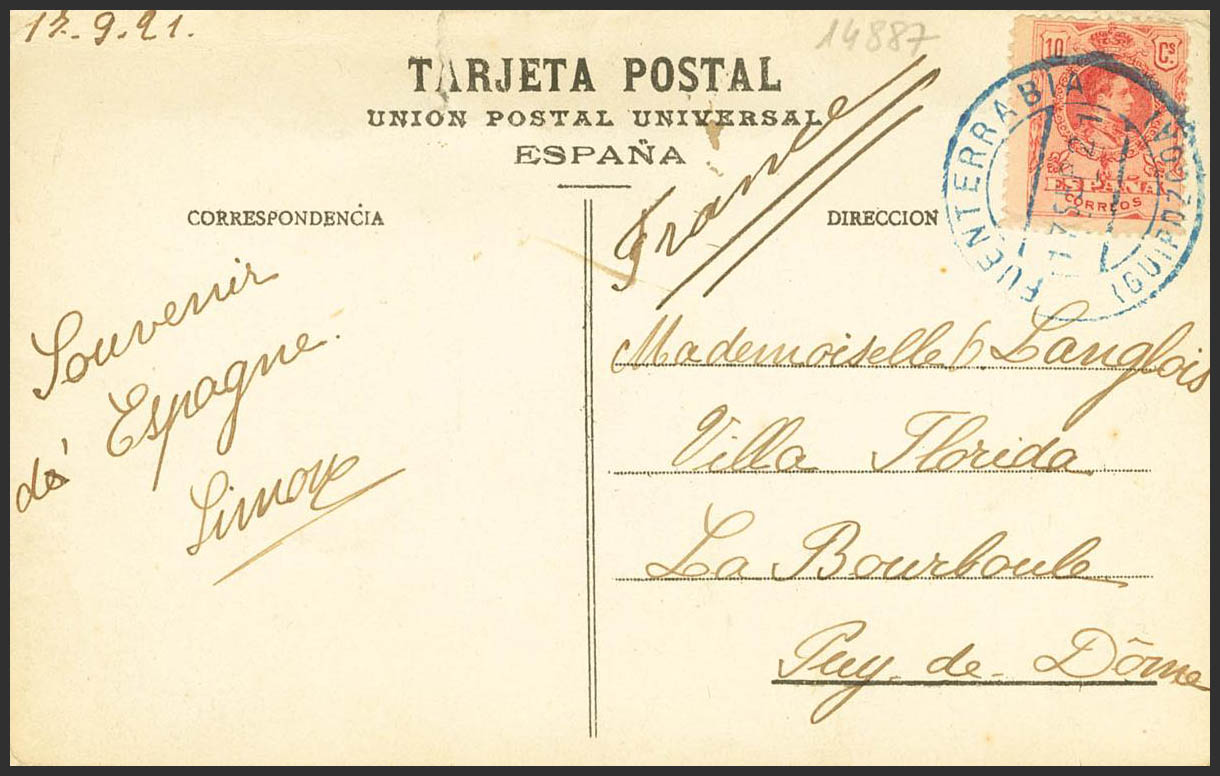 17.9.21.
14887
TARJETA POSTAL
UNION POSTAL UNIVERSAL
ESPAÑA
CORRESPONDENCIA
DIRECCION
France
10 Cs.
ESPAÑA
CORREOS
FUENTERRABIA
(GUIPUZCOA)
Souvenir
d'Espagne.
Simone
Mademoiselle Langlois
Villa Florida
La Bourboule
Puy-de-Dôme